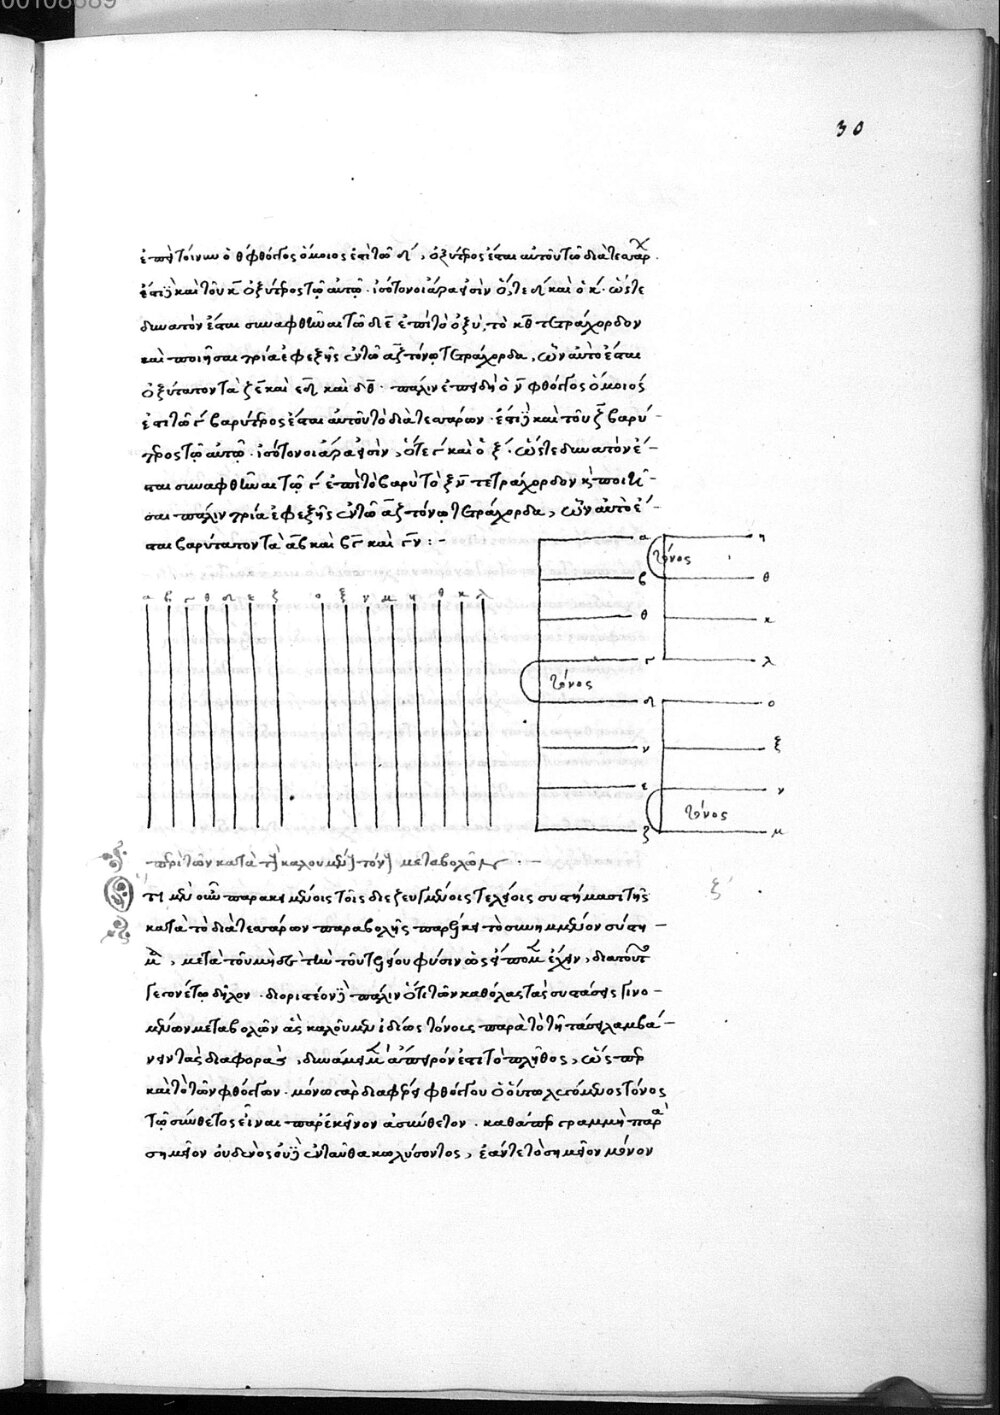 00108689
30
ἐπεὶ τοίνυν ὁ θ φθόγγος ὅμοιος ἐστὶ τῶ δ, ὀξύτερος ἔσται αὐτοῦ τῶ διὰ τεσσάρ.
ἔστι δὲ καὶ τοῦ κ ὀξύτερος τῶ αὐτῶ. ἰσότονοι ἄρα εἰσὶν ὅ, τε δ καὶ ὁ κ. ὥστε
δυνατὸν ἔσται συναφθῆναι τῶ δε ἐπὶ τὸ ὀξὺ, τὸ κθ τετράχορδον
καὶ ποιῆσαι τρία ἐφεξῆς ἐν τῶ αζ τόνω τετράχορδα, ὧν αὐτὸ ἔσται
ὀξύτατον τὰ ζε καὶ εδ καὶ δθ. πάλιν ἐπειδὴ ὁ ν φθόγγος ὅμοιός
ἐστι τῶ γ βαρύτερος ἔσται αὐτοῦ τὸ διὰ τεσσάρων. ἔστι δὲ καὶ τοῦ ξ βαρύ-
τερος τῶ αὐτῶ. ἰσότονοι ἄρα εἰσὶν, ὅτε γ καὶ ὁ ξ. ὥστε δυνατὸν ἔ-
σται συναφθῆναι τῶ γ ἐπὶ τὸ βαρὺ τὸ ξν τετράχορδον κ ποιῆ-
σαι πάλιν τρία ἐφεξῆς ἐν τῶ αζ τόνω τετράχορδα, ὧν αὐτὸ ἔ-
σται βαρύτατον τὰ αβ καὶ βγ καὶ γν :-
α β γ θ δ ε ζ ο ξ ν μ η θ κ λ
α η
τόνος
β θ
θ κ
γ λ
τόνος
δ ο
ν ξ
ε ν
τόνος
ζ μ
περὶ τῶν κατὰ τὴν καλουμένην τόνων μεταβολῶν. -
τῆ μὲν οὖν παρακειμένοις τοῖς διεζευγμένοις τελείοις συστήμασι τῆς
ξ
κατὰ τὸ διὰ τεσσάρων παραβολῆς παρῆκε τὸ συνημμένον σύστη-
μα, μετὰ τοῦ μηδὲ τὴν τοῦ τελείου φύσιν ὡς εἴπομεν ἔχειν, διὰ τούτ
γεγονέτω δῆλον. διοριστέον δὲ πάλιν ὅτι τῶν καθόλας τὰς συστάσεις γινο-
μένων μεταβολῶν ἃς καλοῦμεν ἰδίως τόνοις παρὰ τὸ τῆ τάσει λαμβά-
νειν τὰς διαφοράς, δυνάμει μὲν ἄπειρόν ἐστι τὸ πλῆθος, ὥσπερ
καὶ τὸ τῶν φθόγγων. μόνω γὰρ διαφέρει φθόγγου ὁ οὕτω λεγόμενος τόνος
τῶ σύνθετος εἶναι παρ' ἐκεῖνον ἀσύνθετον. καθάπερ γραμμὴ παρὰ
σημεῖον οὐδενὸς οὐδὲ ἐνταῦθα κωλύοντος, ἐάν τε τὸ σημεῖον μόνον